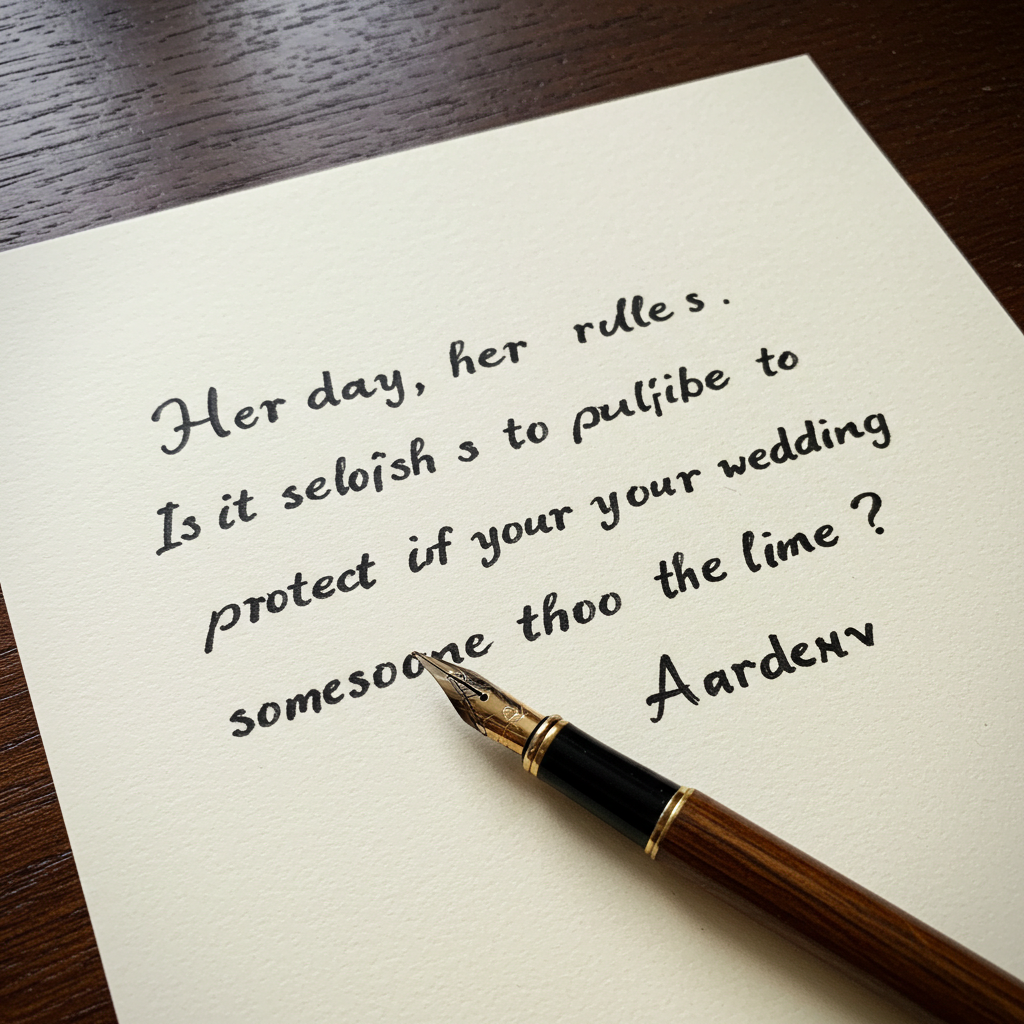 Her day, her rulles.
Is it seloish s to puljibe to
protect if your your wedding
somesoone thoo the lime?
Aardenv